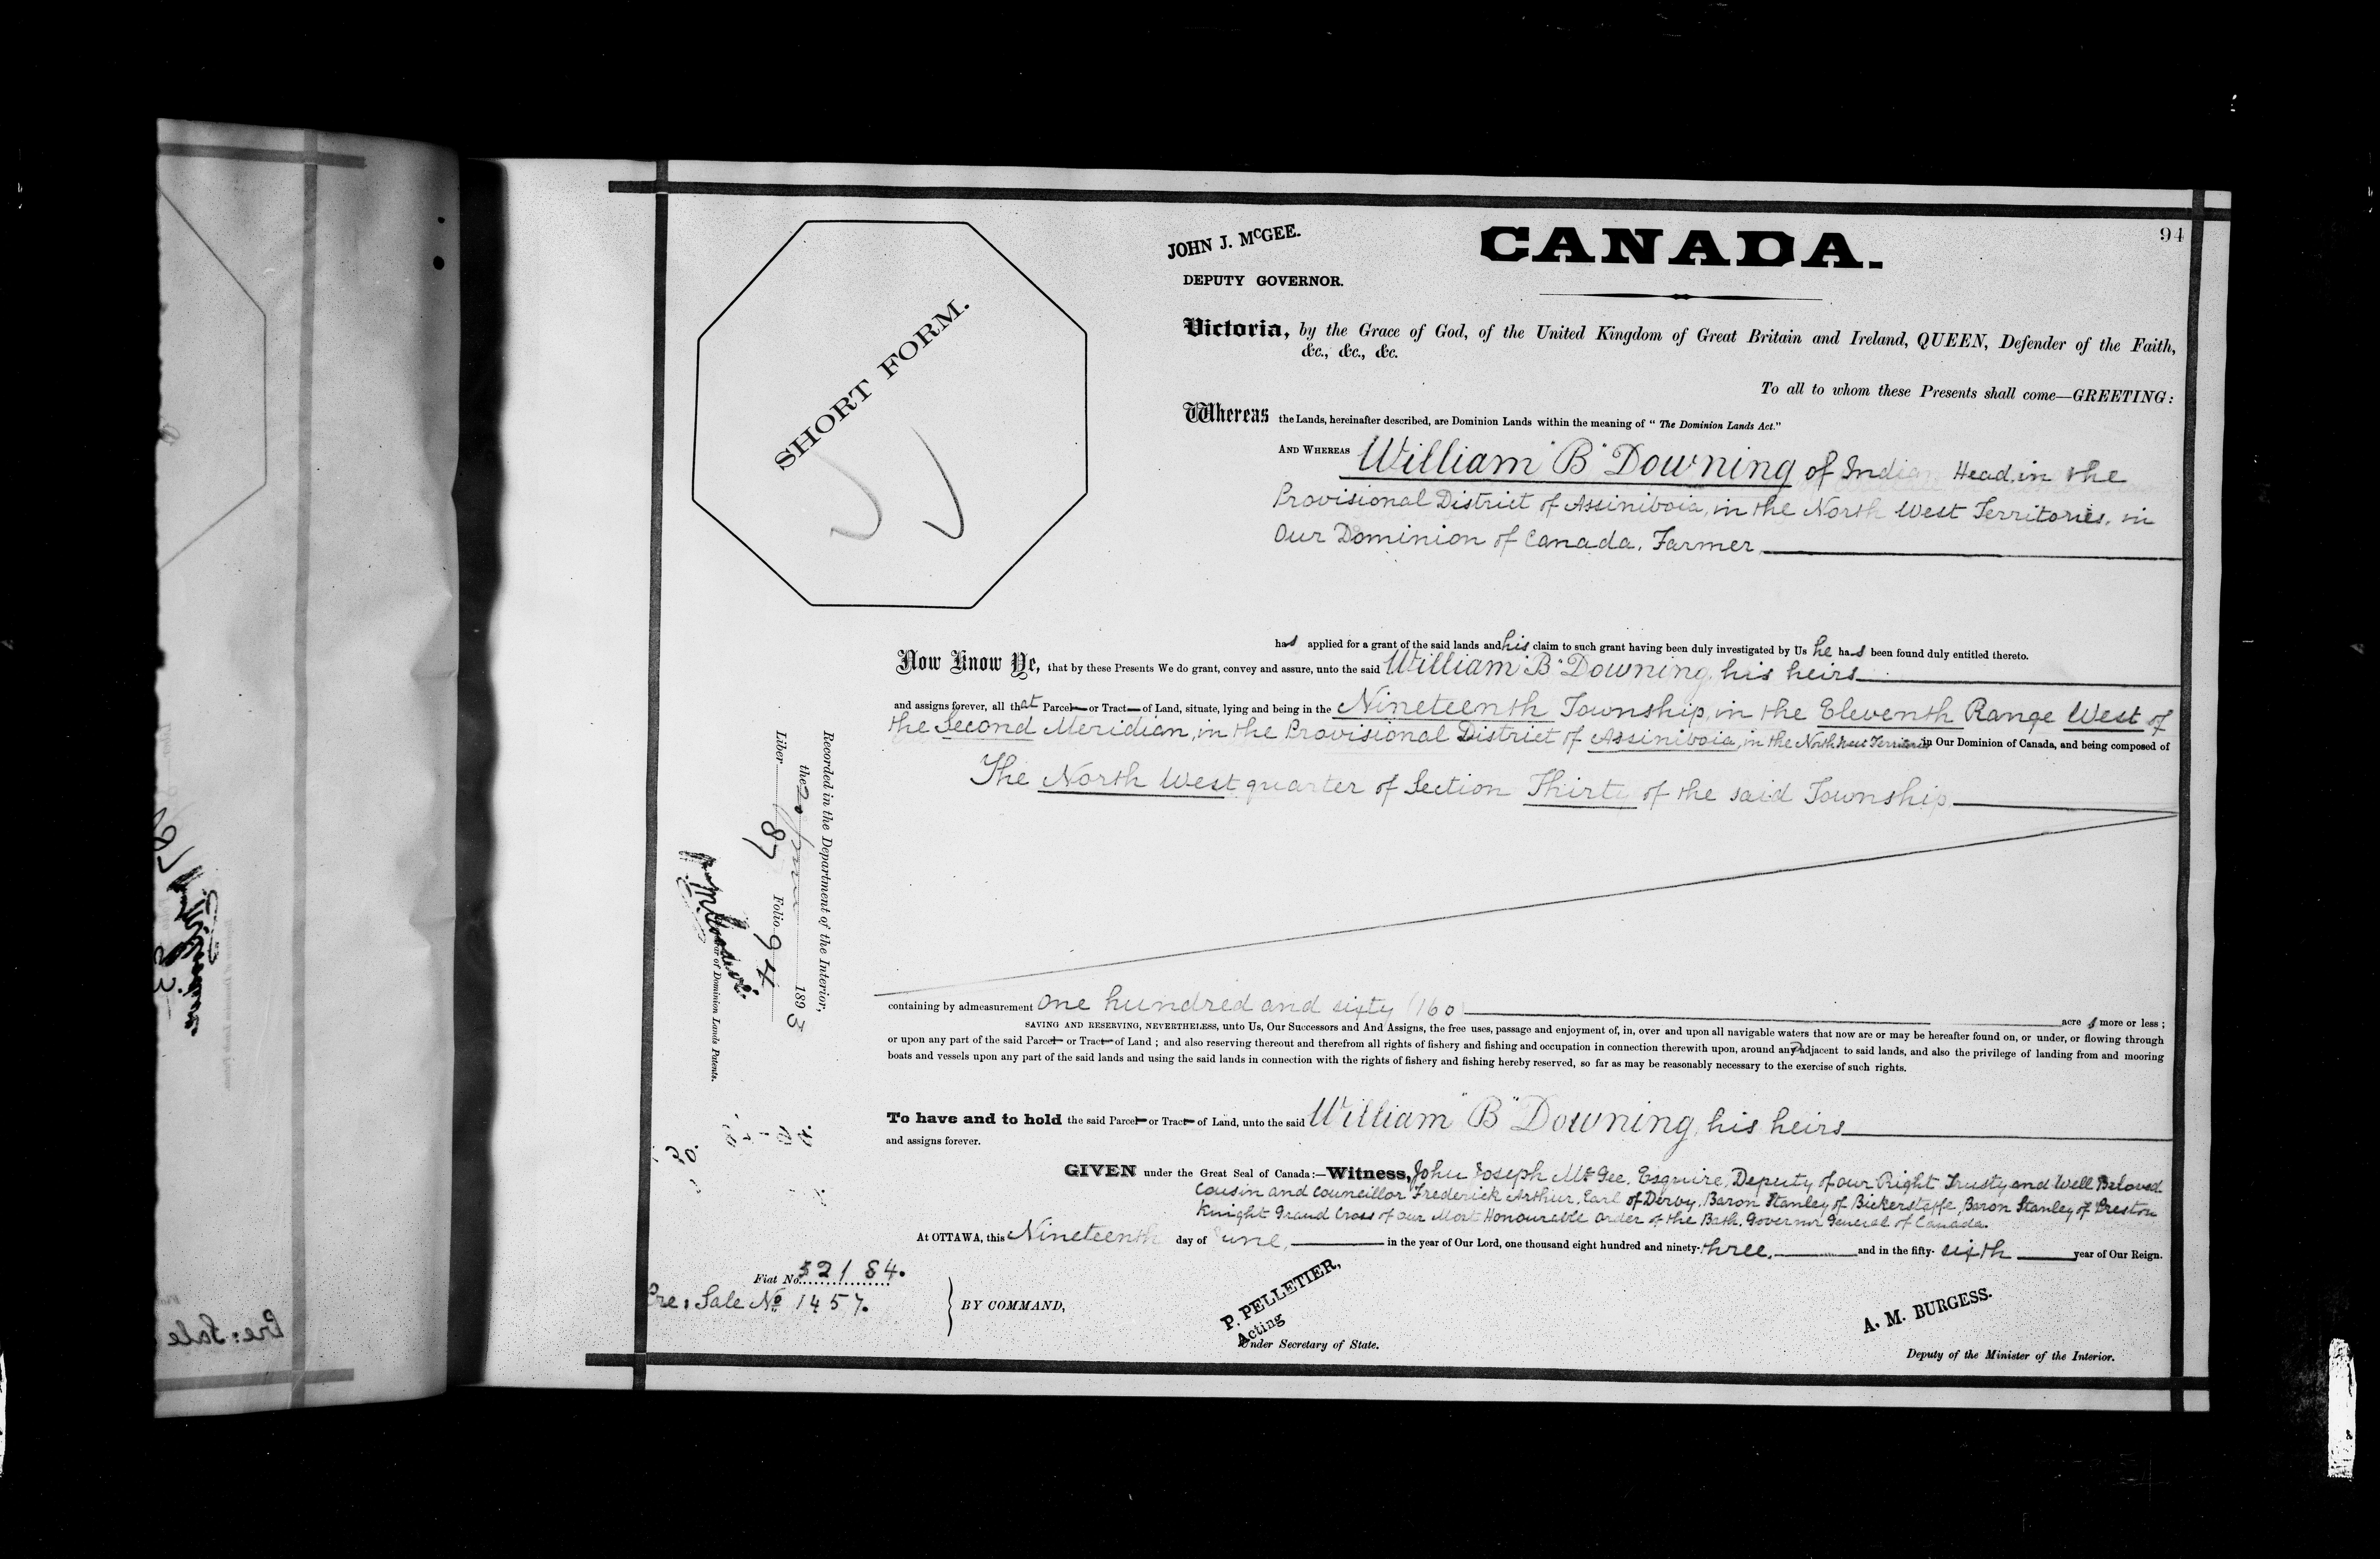 94
JOHN J. McGEE.
DEPUTY GOVERNOR.
CANADA.
SHORT FORM.
Victoria, by the Grace of God, of the United Kingdom of Great Britain and Ireland, QUEEN, Defender of the Faith,
&c., &c., &c.
To all to whom these Presents shall come—GREETING:
Whereas the Lands, hereinafter described, are Dominion Lands within the meaning of "The Dominion Lands Act."
AND WHEREAS William "B" Downing of Indian Head, in the
Provisional District of Assiniboia, in the North West Territories, in
Our Dominion of Canada, Farmer
has applied for a grant of the said lands and his claim to such grant having been duly investigated by Us he has been found duly entitled thereto.
Now Know Ye, that by these Presents We do grant, convey and assure, unto the said William "B" Downing, his heirs
and assigns forever, all that Parcel or Tract of Land, situate, lying and being in the Nineteenth Township, in the Eleventh Range West of
the Second Meridian, in the Provisional District of Assiniboia, in the North West Territories in Our Dominion of Canada, and being composed of
The North West quarter of Section Thirty of the said Township
containing by admeasurement one hundred and sixty (160)
acres more or less;
SAVING AND RESERVING, NEVERTHELESS, unto Us, Our Successors and And Assigns, the free uses, passage and enjoyment of, in, over and upon all navigable waters that now are or may be hereafter found on, or under, or flowing through
or upon any part of the said Parcel or Tract of Land; and also reserving thereout and therefrom all rights of fishery and fishing and occupation in connection therewith upon, around and adjacent to said lands, and also the privilege of landing from and mooring
boats and vessels upon any part of the said lands and using the said lands in connection with the rights of fishery and fishing hereby reserved, so far as may be reasonably necessary to the exercise of such rights.
To have and to hold the said Parcel or Tract of Land, unto the said William "B" Downing, his heirs
and assigns forever.
GIVEN under the Great Seal of Canada:—Witness, John Joseph McGee, Esquire, Deputy of our Right Trusty and Well Beloved
Cousin and Councillor Frederick Arthur, Earl of Derby, Baron Stanley of Bickerstaffe, Baron Stanley of Preston
Knight Grand Cross of our Most Honourable Order of the Bath, Governor General of Canada.
At OTTAWA, this Nineteenth day of June, in the year of Our Lord, one thousand eight hundred and ninety-three, and in the fifty-sixth year of Our Reign.
Fiat No. 52184.
Pre: Sale No 1457.
BY COMMAND,
P. PELLETIER,
Acting
Under Secretary of State.
A. M. BURGESS.
Deputy of the Minister of the Interior.
Recorded in the Department of the Interior,
the 20 June 1893
Liber 87 Folio 94
of Dominion Lands Patents.
Pre: Sale